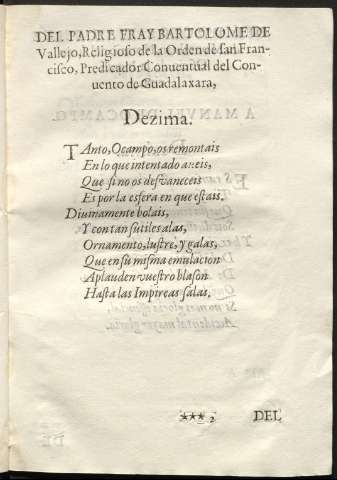 DEL PADRE FRAY BARTOLOME DE
Vallejo, Religioso de la Orden de san Fran-
cisco, Predicador Conuentual del Con-
uento de Guadalaxara,
Dezima.
TAnto, Ocampo, os remontais
En lo que intentado aueis,
Que si no os desvaneceis
Es por la esfera en que estais.
Diuinamente bolais,
Y con tan sutiles alas,
Ornamento, lustre, y galas,
Que en su misma emulacion
Aplauden vuestro blason
Hasta las Impireas salas,
*** 2 DEL